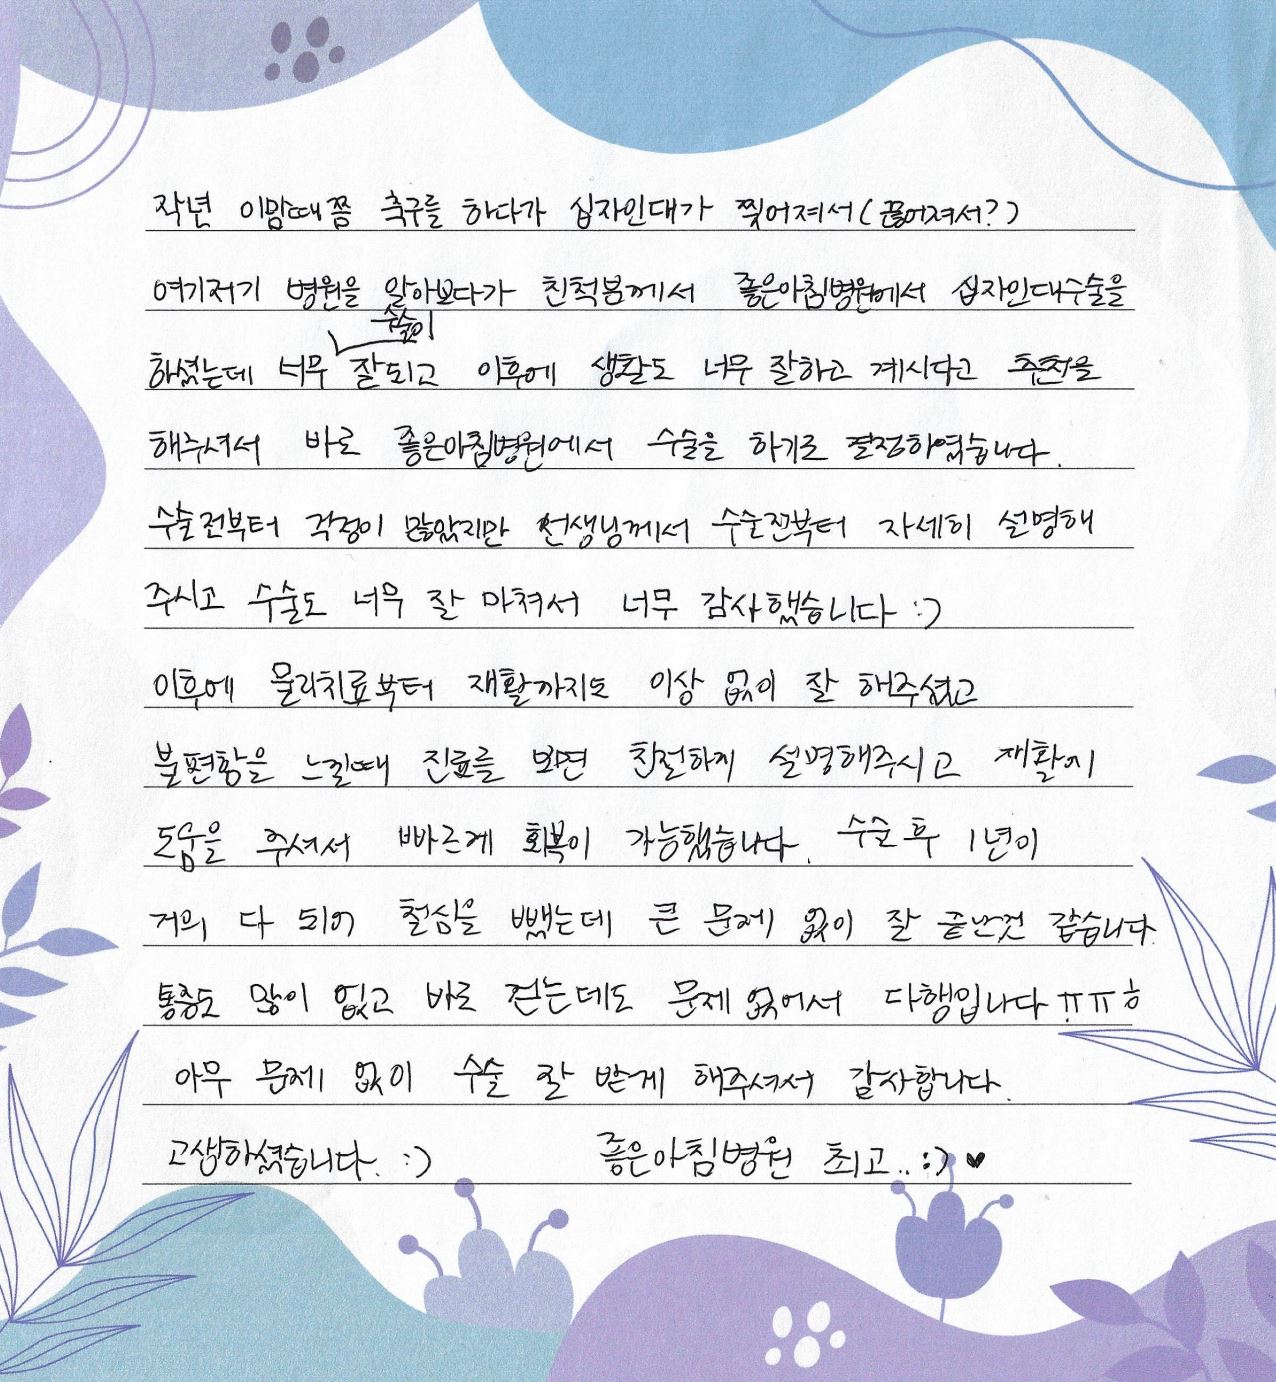 작년 이맘때쯤 축구를 하다가 십자인대가 찢어져서(끊어져서?)
여기저기 병원을 알아보다가 친척분께서 좋은아침병원에서 십자인대수술을
수술이
하셨는데 너무 잘되고 이후에 생활도 너무 잘하고 계시다고 추천을
해주셔서 바로 좋은아침병원에서 수술을 하기로 결정하였습니다.
수술전부터 걱정이 많았지만 선생님께서 수술전부터 자세히 설명해
주시고 수술도 너무 잘 마쳐서 너무 감사했습니다 :)
이후에 물리치료부터 재활까지도 이상 없이 잘 해주셨고
불편함을 느낄때 진료를 보면 친절하게 설명해주시고 재활에
도움을 주셔서 빠르게 회복이 가능했습니다. 수술 후 1년이
거의 다 되어 철심을 뺐는데 큰 문제 없이 잘 끝난것 같습니다.
통증도 많이 없고 바로 걷는데도 문제 없어서 다행입니다 ㅠㅠㅎ
아무 문제 없이 수술 잘 받게 해주셔서 감사합니다.
고생하셨습니다. :) 좋은아침병원 최고..:) ♥